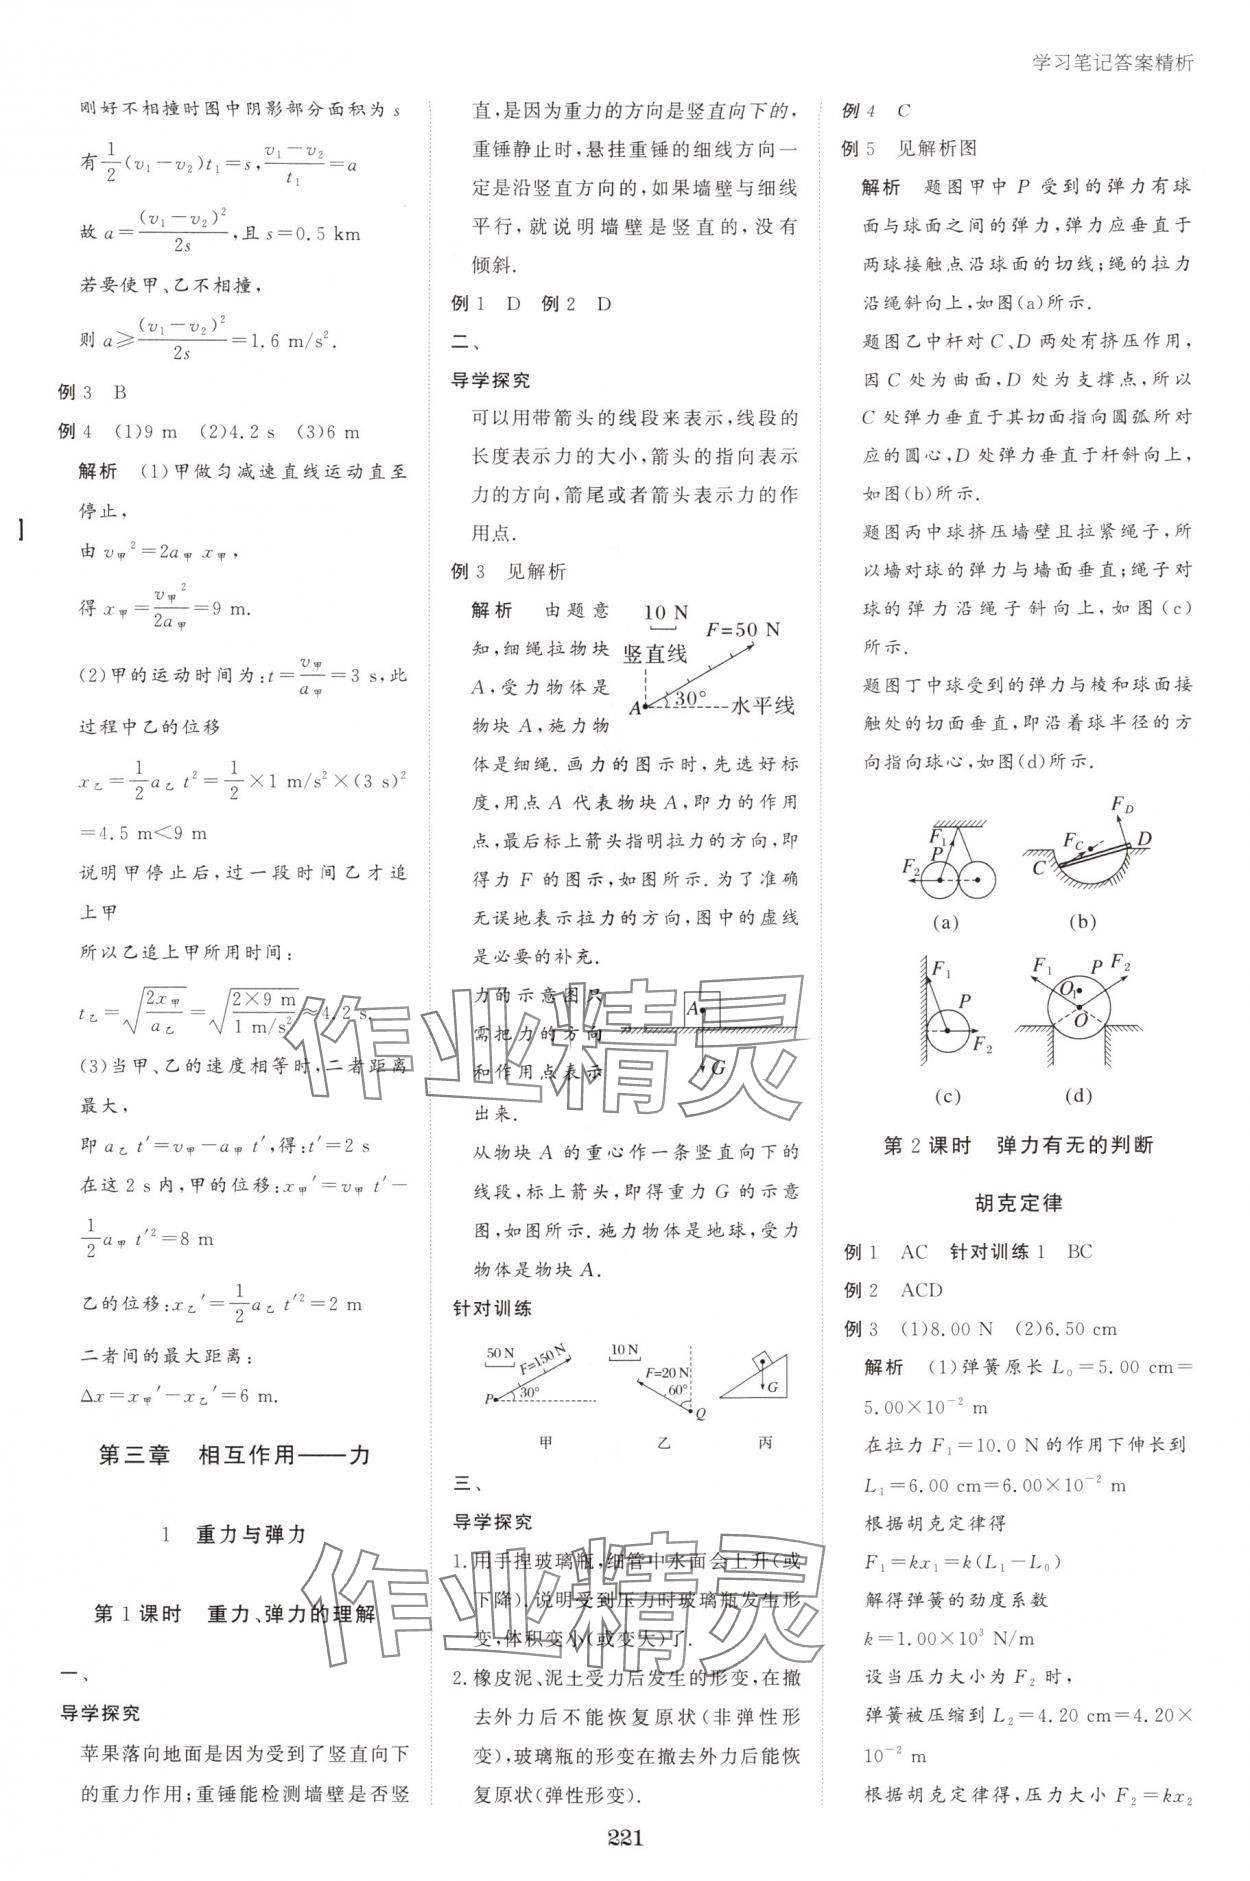 学习笔记答案精析
刚好不相撞时图中阴影部分面积为 s
有\frac{1}{2}(v₁－v₂)t₁＝s,\frac{v₁－v₂}{t₁}＝a
故 a＝\frac{(v₁－v₂)²}{2s},且 s＝0.5 km
若要使甲、乙不相撞,
则 a≥\frac{(v₁－v₂)²}{2s}＝1.6 m/s².
例 3　B
例 4　(1)9 m　(2)4.2 s　(3)6 m
解析　(1)甲做匀减速直线运动直至
停止,
由 v甲²＝2a甲 x甲,
得 x甲＝\frac{v甲²}{2a甲}＝9 m.
(2)甲的运动时间为:t＝\frac{v甲}{a甲}＝3 s,此
过程中乙的位移
x乙＝\frac{1}{2}a乙 t²＝\frac{1}{2}×1 m/s²×(3 s)²
＝4.5 m<9 m
说明甲停止后,过一段时间乙才追
上甲
所以乙追上甲所用时间:
t乙＝\sqrt{\frac{2x甲}{a乙}}＝\sqrt{\frac{2×9 m}{1 m/s²}}≈4.2 s.
(3)当甲、乙的速度相等时,二者距离
最大,
即 a乙 t′＝v甲－a甲 t′,得:t′＝2 s
在这 2 s内,甲的位移:x甲′＝v甲 t′－
\frac{1}{2}a甲 t′²＝8 m
乙的位移:x乙′＝\frac{1}{2}a乙 t′²＝2 m
二者间的最大距离:
Δx＝x甲′－x乙′＝6 m.
第三章　相互作用——力
1　重力与弹力
第 1 课时　重力、弹力的理解
一、
导学探究
苹果落向地面是因为受到了竖直向下
的重力作用;重锤能检测墙壁是否竖
直,是因为重力的方向是竖直向下的,
重锤静止时,悬挂重锤的细线方向一
定是沿竖直方向的,如果墙壁与细线
平行,就说明墙壁是竖直的,没有
倾斜.
例 1　D　例 2　D
二、
导学探究
可以用带箭头的线段来表示,线段的
长度表示力的大小,箭头的指向表示
力的方向,箭尾或者箭头表示力的作
用点.
例 3　见解析
解析　由题意
知,细绳拉物块
A,受力物体是
物块 A,施力物
10 N
F=50 N
竖直线
A
30°
水平线
体是细绳.画力的图示时,先选好标
度,用点 A 代表物块 A,即力的作用
点,最后标上箭头指明拉力的方向,即
得力 F 的图示,如图所示.为了准确
无误地表示拉力的方向,图中的虚线
是必要的补充.
力的示意图只
需把力的方向
和作用点表示
出来.
A
G
从物块 A 的重心作一条竖直向下的
线段,标上箭头,即得重力 G 的示意
图,如图所示.施力物体是地球,受力
物体是物块 A.
针对训练
50 N
F=150 N
P
30°
甲
10 N
F=20 N
60°
Q
乙
G
丙
三、
导学探究
1.用手捏玻璃瓶,细管中水面会上升(或
下降).说明受到压力时玻璃瓶发生形
变,体积变小(或变大)了.
2.橡皮泥、泥土受力后发生的形变,在撤
去外力后不能恢复原状(非弹性形
变),玻璃瓶的形变在撤去外力后能恢
复原状(弹性形变).
例 4　C
例 5　见解析图
解析　题图甲中 P 受到的弹力有球
面与球面之间的弹力,弹力应垂直于
两球接触点沿球面的切线;绳的拉力
沿绳斜向上,如图(a)所示.
题图乙中杆对 C、D 两处有挤压作用,
因 C 处为曲面,D 处为支撑点,所以
C 处弹力垂直于其切面指向圆弧所对
应的圆心,D 处弹力垂直于杆斜向上,
如图(b)所示.
题图丙中球挤压墙壁且拉紧绳子,所
以墙对球的弹力与墙面垂直;绳子对
球的弹力沿绳子斜向上,如图(c)
所示.
题图丁中球受到的弹力与棱和球面接
触处的切面垂直,即沿着球半径的方
向指向球心,如图(d)所示.
F₁
P
F₂
(a)
F_D
F_C
C
D
(b)
F₁
P
F₂
(c)
F₁
P
F₂
O₁
O
(d)
第 2 课时　弹力有无的判断
胡克定律
例 1　AC　针对训练 1　BC
例 2　ACD
例 3　(1)8.00 N　(2)6.50 cm
解析　(1)弹簧原长 L₀＝5.00 cm＝
5.00×10⁻² m
在拉力 F₁＝10.0 N的作用下伸长到
L₁＝6.00 cm＝6.00×10⁻² m
根据胡克定律得
F₁＝kx₁＝k(L₁－L₀)
解得弹簧的劲度系数
k＝1.00×10³ N/m
设当压力大小为 F₂ 时,
弹簧被压缩到 L₂＝4.20 cm＝4.20×
10⁻² m
根据胡克定律得,压力大小 F₂＝kx₂
221
作业精灵
作业精灵